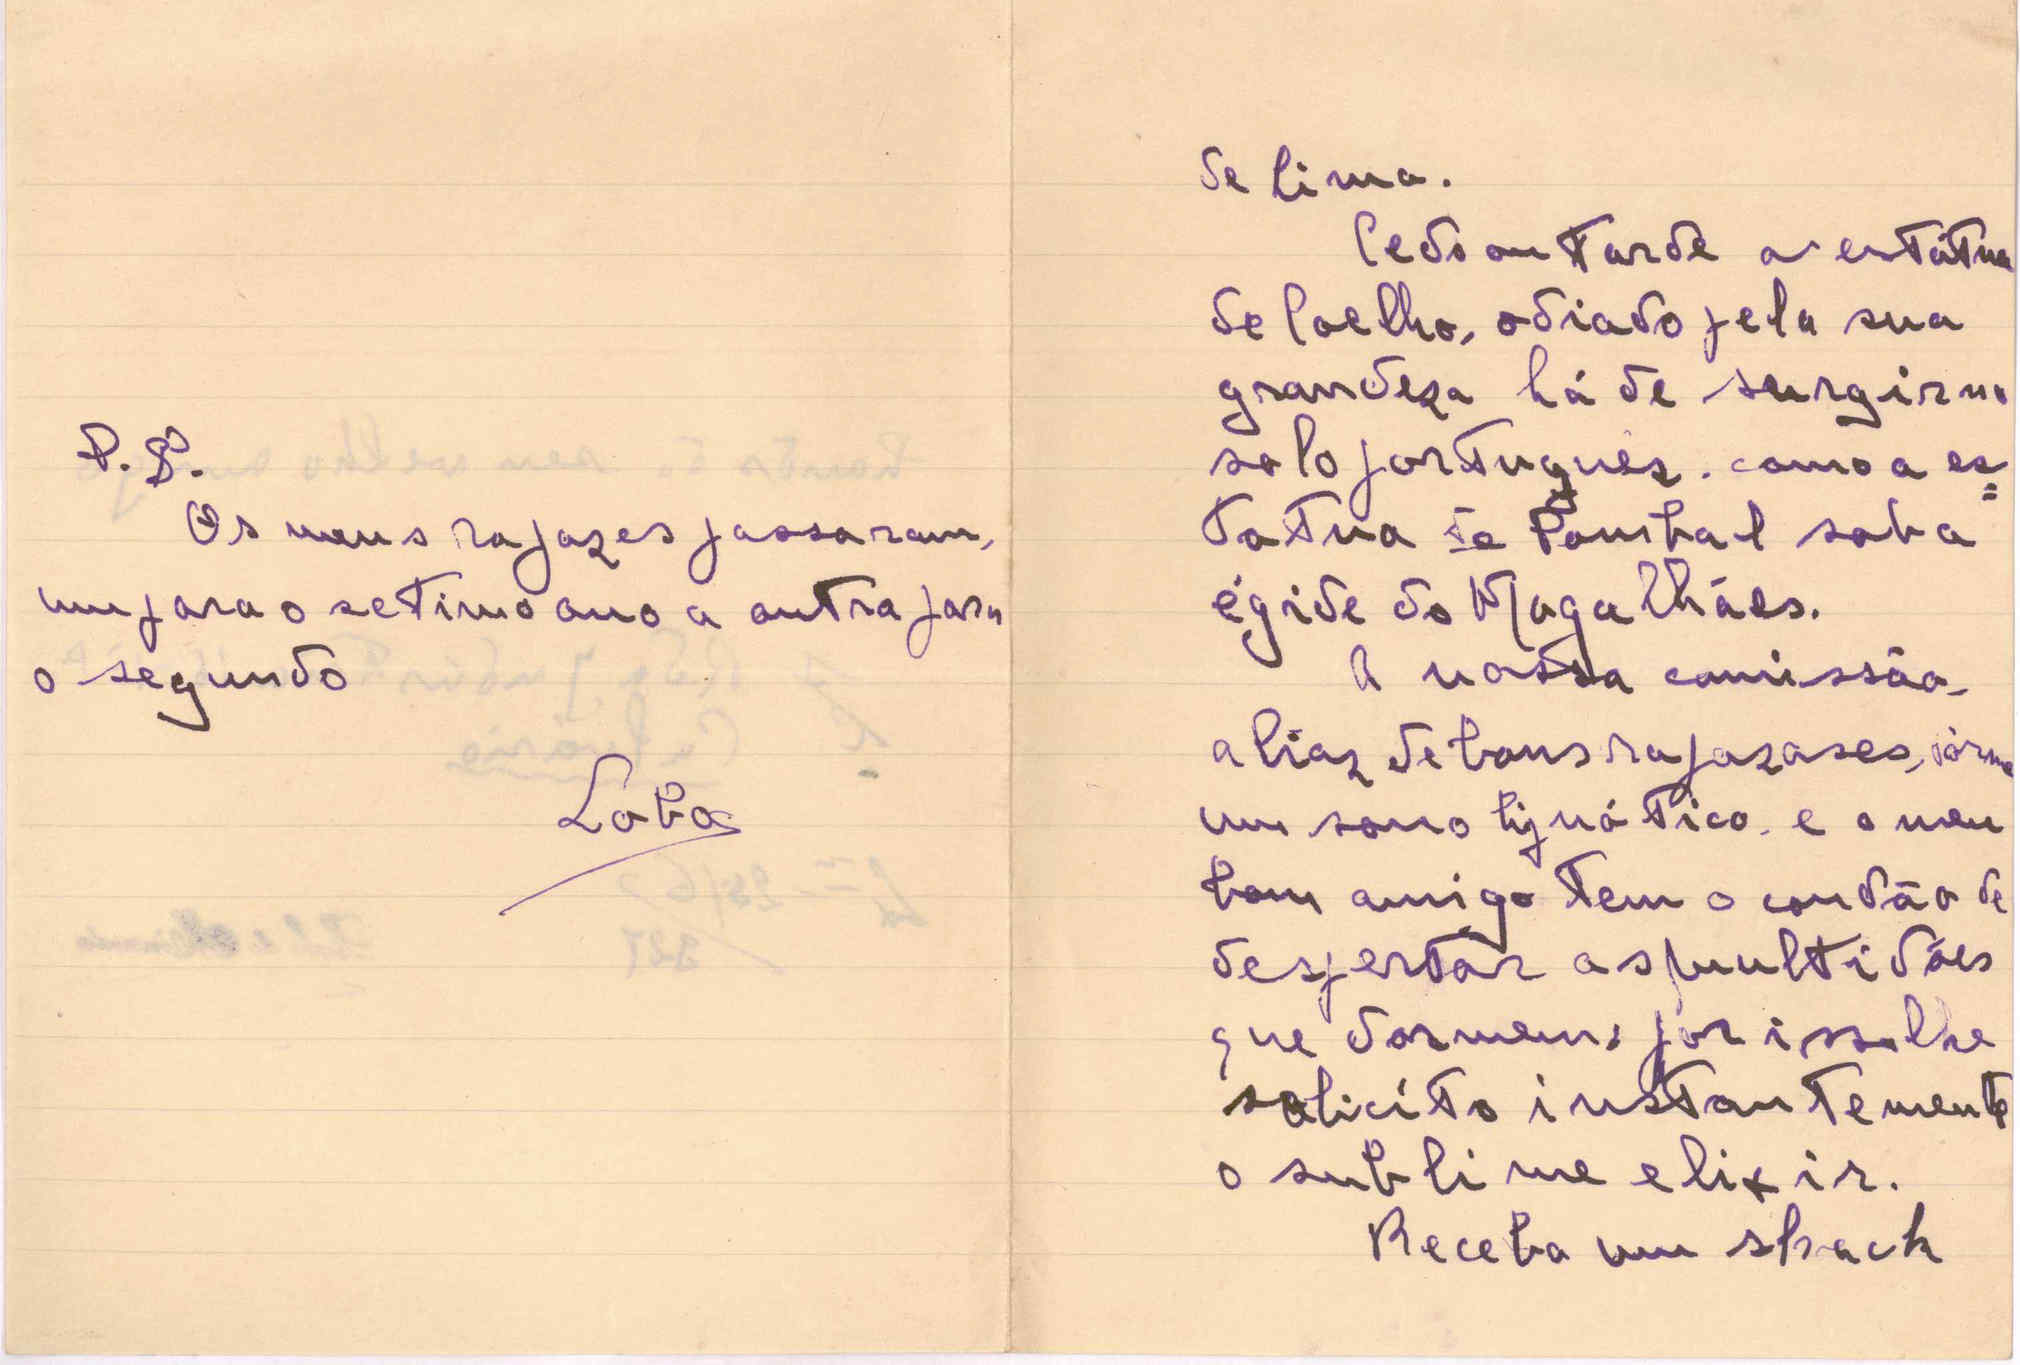 P.S.
Os meus rapazes passaram,
um para o setimo ano a outra para
o segundo
Lobo
de Lima.
Cedo ou tarde a estátua
de Coelho, odiado pela sua
grandeza há de surgir no
solo português. como a es=
tatua de Pombal sob a
égide do Magalhães.
A nossa comissão,
aliaz de bons rapazases, dorme
um sono hipnótico. e o meu
bom amigo tem o condão de
despertar as multidões
que dormem; por isso lhe
solicito instantemente
o sublime elixir.
Receba um shack